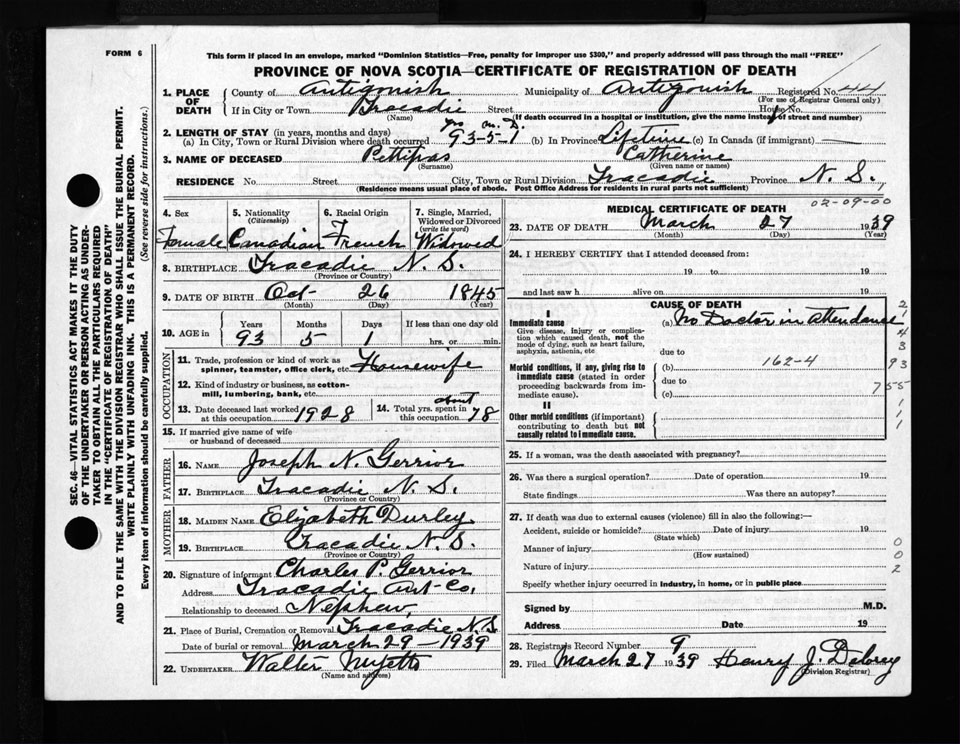 FORM 6
This form if placed in an envelope, marked "Dominion Statistics—Free, penalty for improper use $300," and properly addressed will pass through the mail "FREE"
PROVINCE OF NOVA SCOTIA—CERTIFICATE OF REGISTRATION OF DEATH
1. PLACE OF DEATH County of Antigonish Municipality of Antigonish Registered No. 44
(For use of Registrar General only)
If in City or Town Tracadie Street House No.
(Name) (If death occurred in a hospital or institution, give name instead of street and number)
yrs m. D.
2. LENGTH OF STAY (in years, months and days)
(a) In City, Town or Rural Division where death occurred 93-5-1 (b) In Province Lifetime (c) In Canada (if immigrant)
3. NAME OF DECEASED Pettipas Catherine
(Surname) (Given name or names)
RESIDENCE No. Street City, Town or Rural Division Tracadie Province N. S.
(Residence means usual place of abode. Post Office Address for residents in rural parts not sufficient)
4. Sex Female
5. Nationality (Citizenship) Canadian
6. Racial Origin French
7. Single, Married, Widowed or Divorced (write the word) Widowed
8. BIRTHPLACE Tracadie N. S.
(Province or Country)
9. DATE OF BIRTH Oct 26 1845
(Month) (Day) (Year)
10. AGE in Years Months Days If less than one day old
93 5 1 hrs. or min.
OCCUPATION
11. Trade, profession or kind of work as spinner, teamster, office clerk, etc. Housewife
12. Kind of industry or business, as cotton-mill, lumbering, bank, etc.
13. Date deceased last worked at this occupation 1928
14. Total yrs. spent in this occupation about 78
15. If married give name of wife or husband of deceased
FATHER
16. NAME Joseph N. Gerrior
17. BIRTHPLACE Tracadie N. S.
(Province or Country)
MOTHER
18. MAIDEN NAME Elizabeth Durley
19. BIRTHPLACE Tracadie N. S.
(Province or Country)
20. Signature of informant Charles P. Gerrior
Address Tracadie Ant-Co,
Relationship to deceased Nephew
21. Place of Burial, Cremation or Removal Tracadie N.S.
Date of burial or removal March 29-1939
22. UNDERTAKER Walter
(Name and address)
02-09-00
MEDICAL CERTIFICATE OF DEATH
23. DATE OF DEATH March 27 1939
(Month) (Day) (Year)
24. I HEREBY CERTIFY that I attended deceased from:
19 to 19
and last saw h alive on 19
CAUSE OF DEATH
I
Immediate cause
Give disease, injury or complication which caused death, not the mode of dying, such as heart failure, asphyxia, asthenia, etc
(a) No Doctor in attendance
due to
Morbid conditions, if any, giving rise to immediate cause (stated in order proceeding backwards from immediate cause).
(b) 162-4
due to
(c)
II
Other morbid conditions (if important) contributing to death but not causally related to immediate cause.
25. If a woman, was the death associated with pregnancy?
26. Was there a surgical operation? Date of operation 19
State findings Was there an autopsy?
27. If death was due to external causes (violence) fill in also the following:—
Accident, suicide or homicide? Date of injury 19
(State which)
Manner of injury
(How sustained)
Nature of injury
Specify whether injury occurred in industry, in home, or in public place
Signed by M.D.
Address Date 19
28. Registrar's Record Number 9
29. Filed March 27 1939 Henry J. Delorey
(Division Registrar)
2
1
4
3
93
755
1
1
1
0
0
2
SEC. 46—VITAL STATISTICS ACT MAKES IT THE DUTY
OF THE UNDERTAKER OR PERSON ACTING AS UNDER-
TAKER TO OBTAIN ALL THE PARTICULARS REQUIRED
IN THE "CERTIFICATE OF REGISTRATION OF DEATH"
AND TO FILE THE SAME WITH THE DIVISION REGISTRAR WHO SHALL ISSUE THE BURIAL PERMIT.
WRITE PLAINLY WITH UNFADING INK. THIS IS A PERMANENT RECORD.
Every item of information should be carefully supplied. (See reverse side for instructions.)